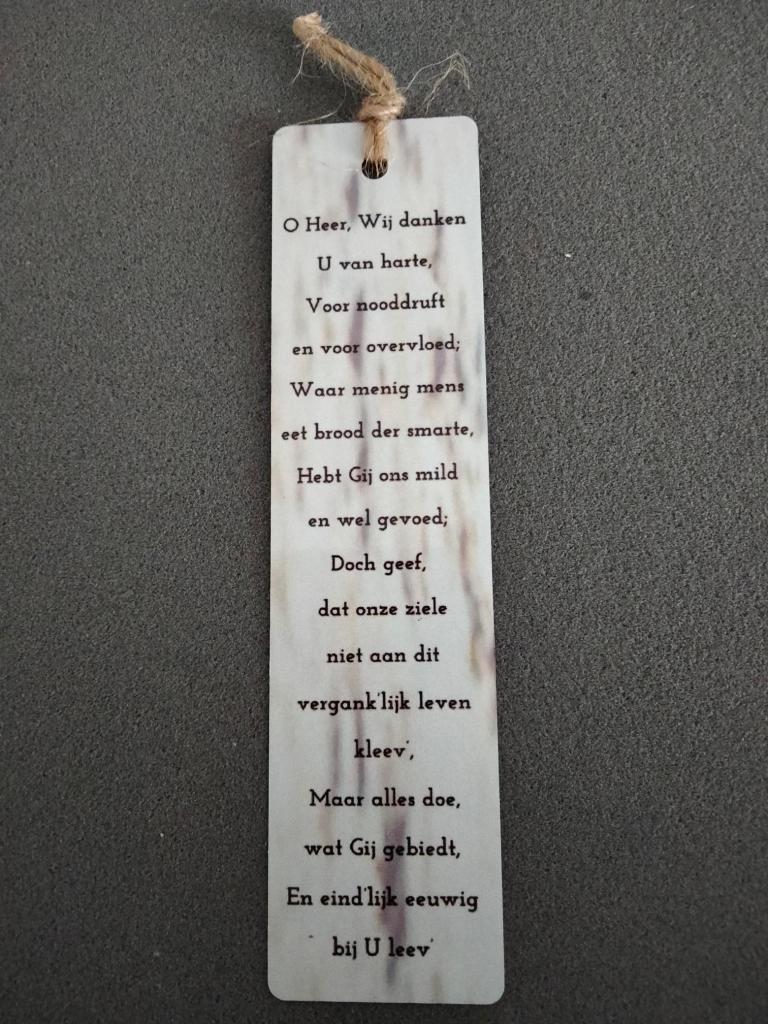 O Heer, Wij danken
U van harte,
Voor nooddruft
en voor overvloed;
Waar menig mens
eet brood der smarte,
Hebt Gij ons mild
en wel gevoed;
Doch geef,
dat onze ziele
niet aan dit
vergank'lijk leven
kleev',
Maar alles doe,
wat Gij gebiedt,
En eind'lijk eeuwig
bij U leev'